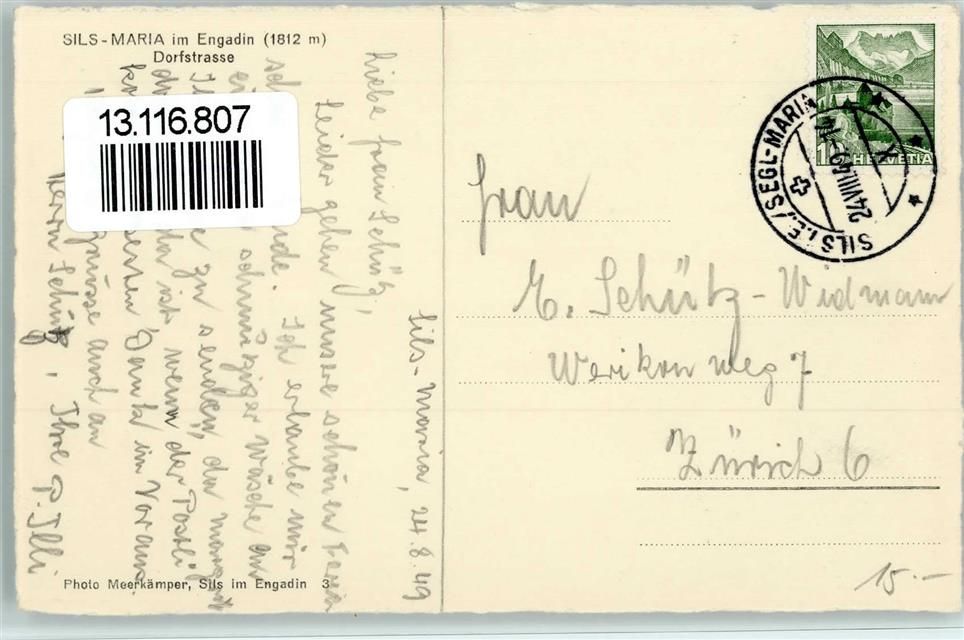 SILS-MARIA im Engadin (1812 m)
Dorfstrasse
13.116.807
Sils-Maria, 24.8.49
Liebe Frau Schütz,
Leider gehen unsere schönen
Ich erlaube mir
schmutziger Wäsche an
zu senden, da
da ist wenn der Pöstli
Dank im Voraus
grüsse auch an
Herrn Schütz, Ihre P. Illi
Photo Meerkämper, Sils im Engadin 3
HELVETIA
SILS i.E./SEGL-MARIA
24.VIII.49
Frau
E. Schütz-Widmann
Werikonweg 7
Zürich 6
15.-